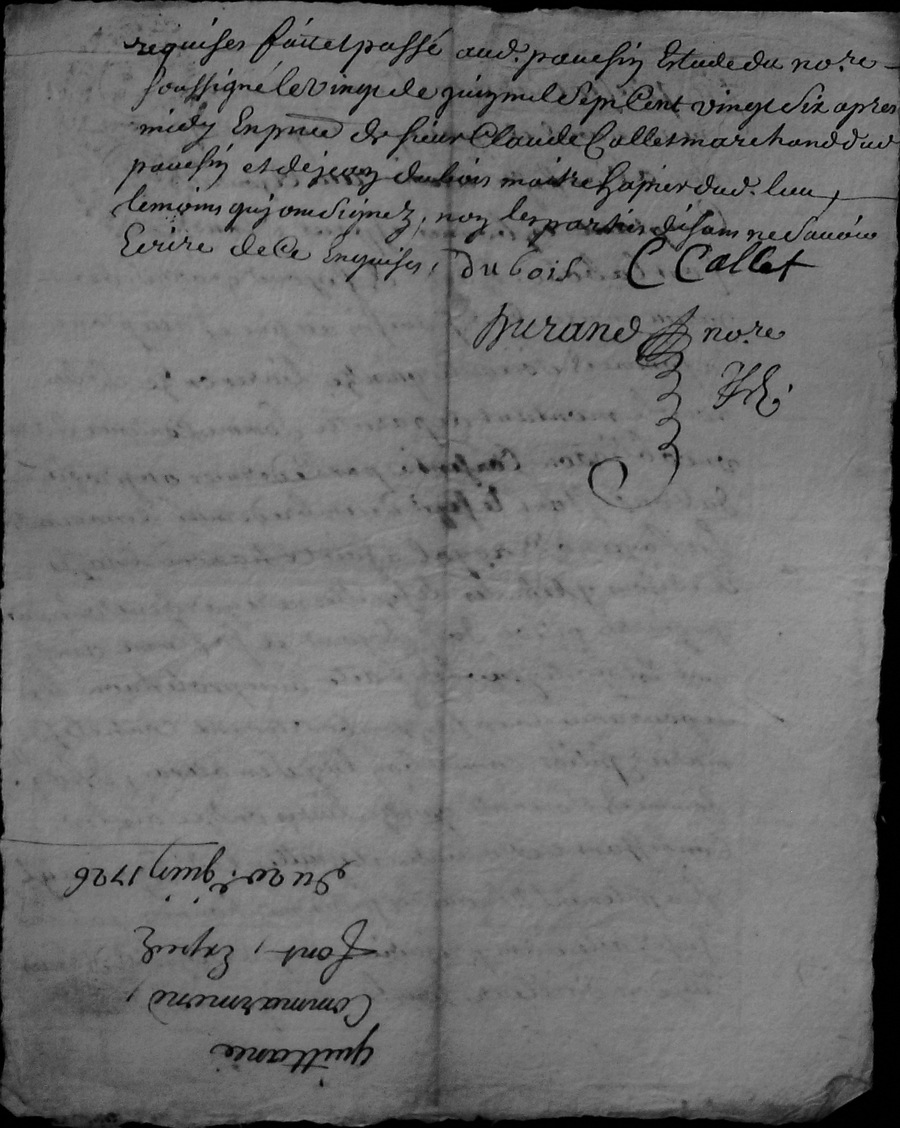 requises fait et passé aud. pouesin Estude du no.re
soussigné le vingt de juin mil Sept Cent vingt Six apres
midy En pnce de sieur Claude Collet marchand dud
pouesin et de jean dubois maitre dud. lieu,
temoins qui ont Signez, non les parties disant ne Savoir
Ecrire de Ce Enquises, dubois C Collet
Durand no.re
quittance
Commarmond,
font, Exped
Du 20.e juin 1726